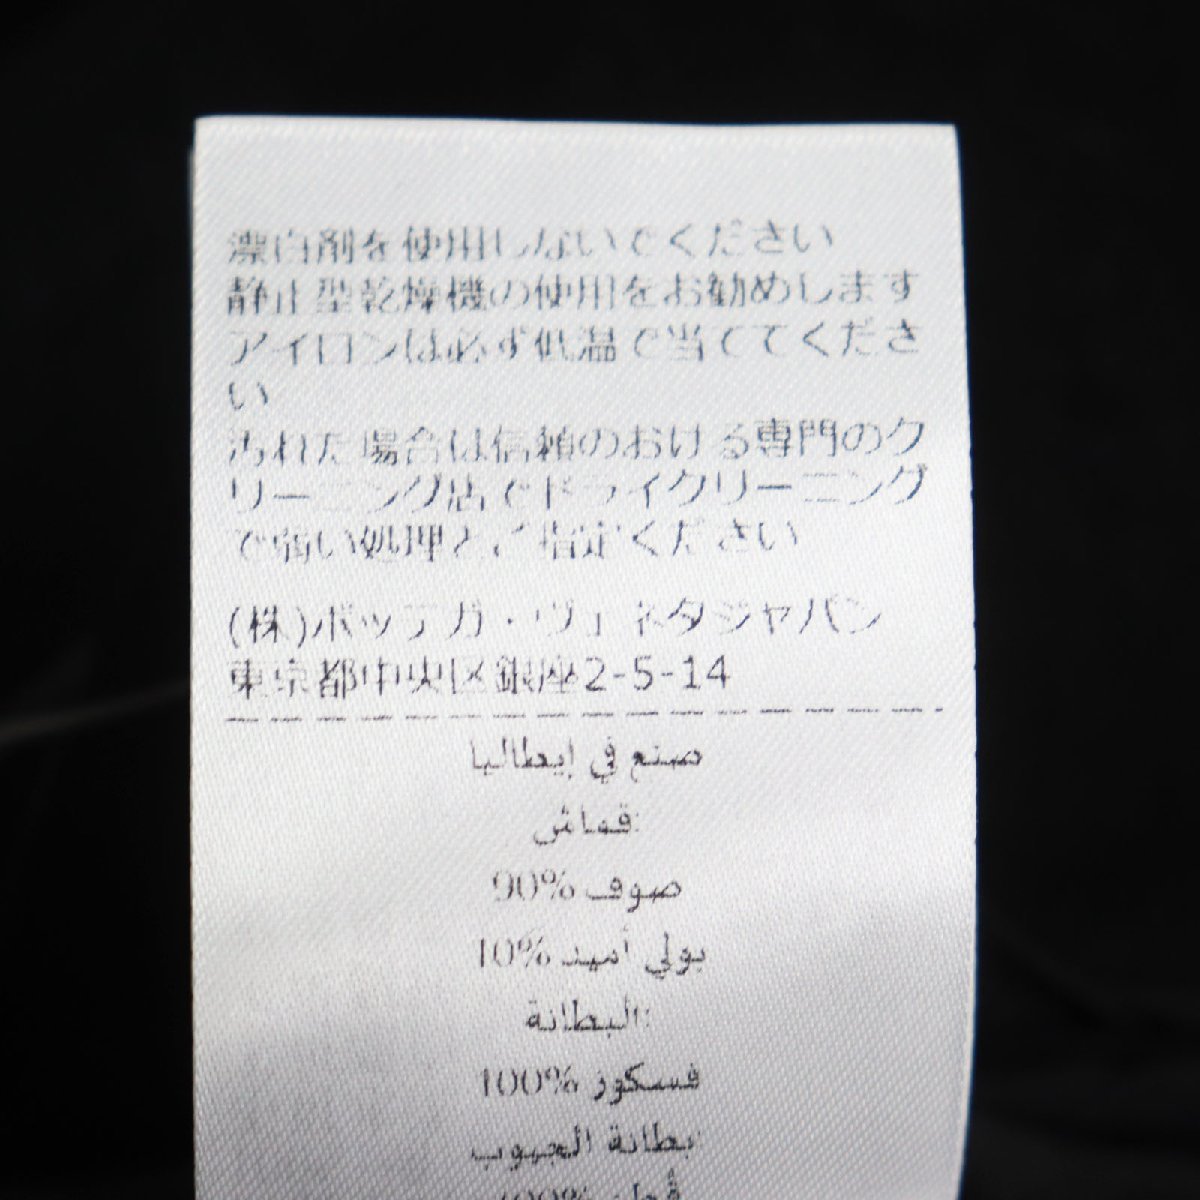 漂白剤を使用しないでください
静止型乾燥機の使用をお勧めします
アイロンは必ず低温で当ててくださ
い
汚れた場合は信頼のおける専門のク
リーニング店でドライクリーニング
で弱い処理とご指定ください
(株)ボッテガ・ヴェネタジャパン
東京都中央区銀座2-5-14
صنع في إيطاليا
قماش:
صوف 90%
بولي أميد 10%
البطانة:
فسكوز 100%
بطانة الجيوب:
قطن 100%